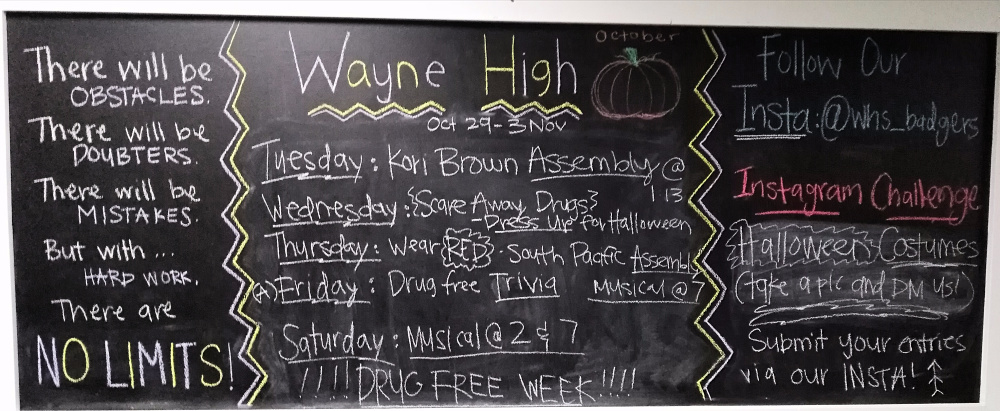 There will be
OBSTACLES.
There will be
DOUBTERS.
There will be
MISTAKES.
But with ...
HARD WORK.
There are
NO LIMITS!
Wayne High
October
Oct 29 - 3 Nov
Tuesday: Kori Brown Assembly @
1 13
Wednesday: {Scare Away Drugs}
- Dress Up for Halloween
Thursday: Wear RED · South Pacific Assembly
(A) Friday: Drug free Trivia Musical @ 7
Saturday: Musical @ 2 & 7
!!!! DRUG FREE WEEK !!!!
Follow Our
Insta: @whs_badgers
Instagram Challenge
Halloween Costumes
(take a pic and DM us!)
Submit your entries
via our INSTA!